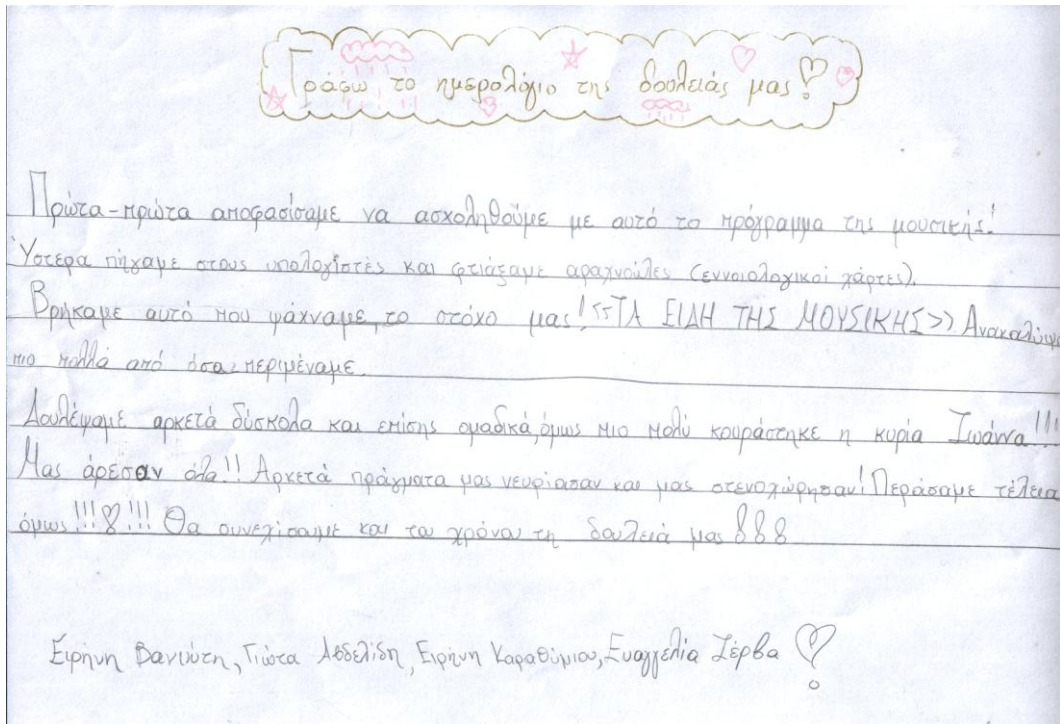 Γράφω το ημερολόγιο της δουλειάς μας!
Πρώτα-πρώτα αποφασίσαμε να ασχοληθούμε με αυτό το πρόγραμμα της μουσικής!
Ύστερα πήγαμε στους υπολογιστές και φτιάξαμε αραχνούλες (εννοιολογικοί χάρτες).
Βρήκαμε αυτό που ψάχναμε, το στόχο μας! <<ΤΑ ΕΙΔΗ ΤΗΣ ΜΟΥΣΙΚΗΣ>>
πιο πολλά από όσα περιμέναμε.
Δουλέψαμε αρκετά δύσκολα και επίσης ομαδικά, όμως πιο πολύ κουράστηκε η κυρία Ιωάννα!!!
Μας άρεσαν όλα!! Αρκετά πράγματα μας νευρίασαν και μας στενοχώρησαν! Περάσαμε τέλεια
όμως!!!♡!!! Θα συνεχίσουμε και του χρόνου τη δουλειά μας
Ειρήνη Βανιώτη, Γιώτα, Ειρήνη Καραθύμιου, Ευαγγελία Ζέρβα